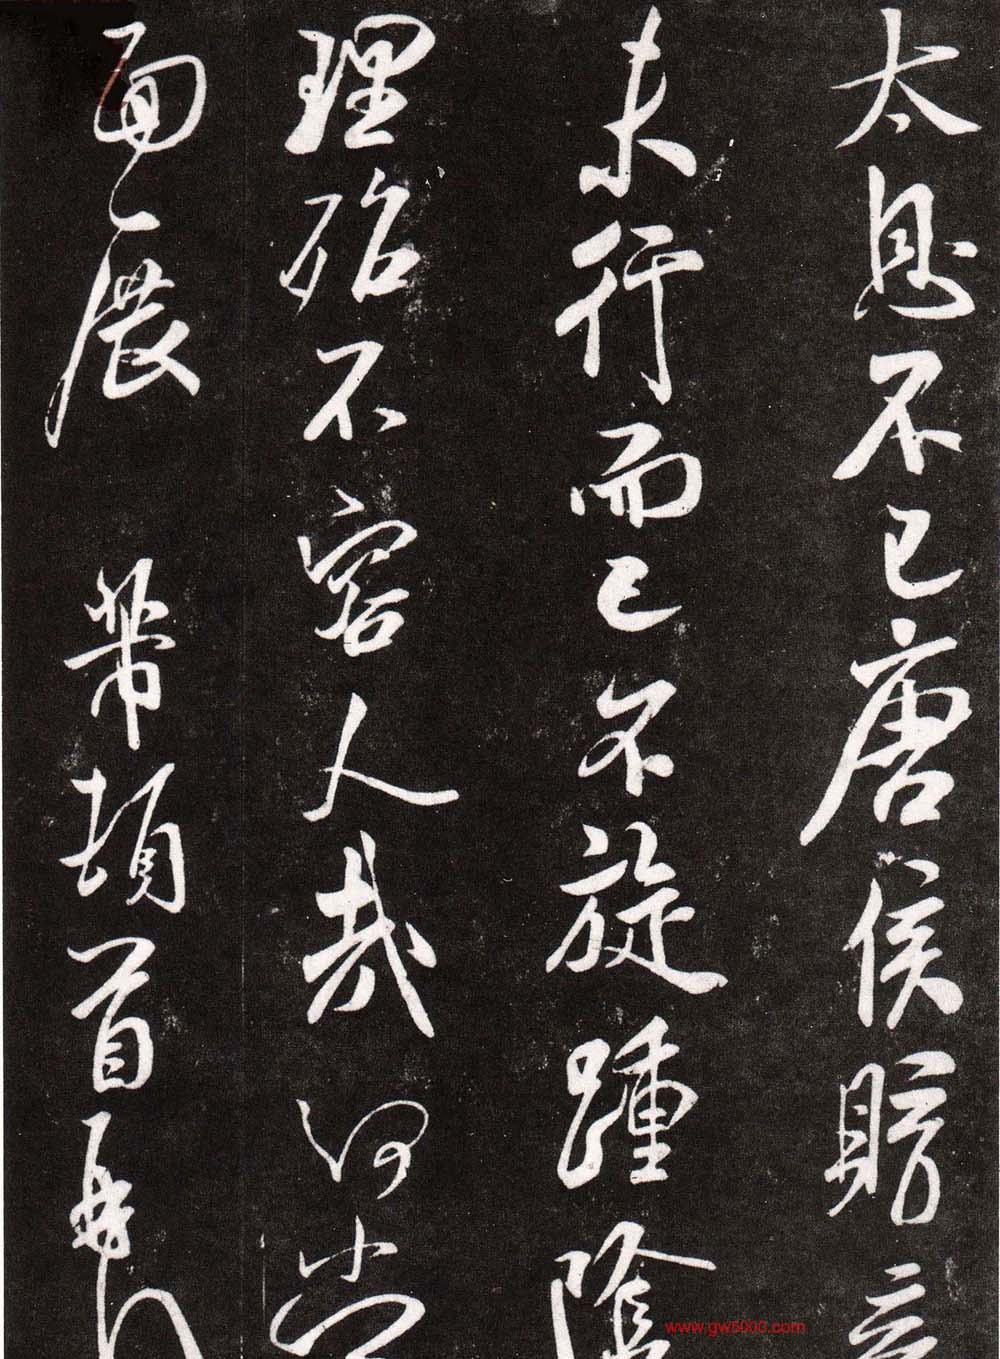 太息不已唐侯
未行而已不旋踵陰
理殆不容人哉何當
面展 芾頓首再
www.gw5000.com